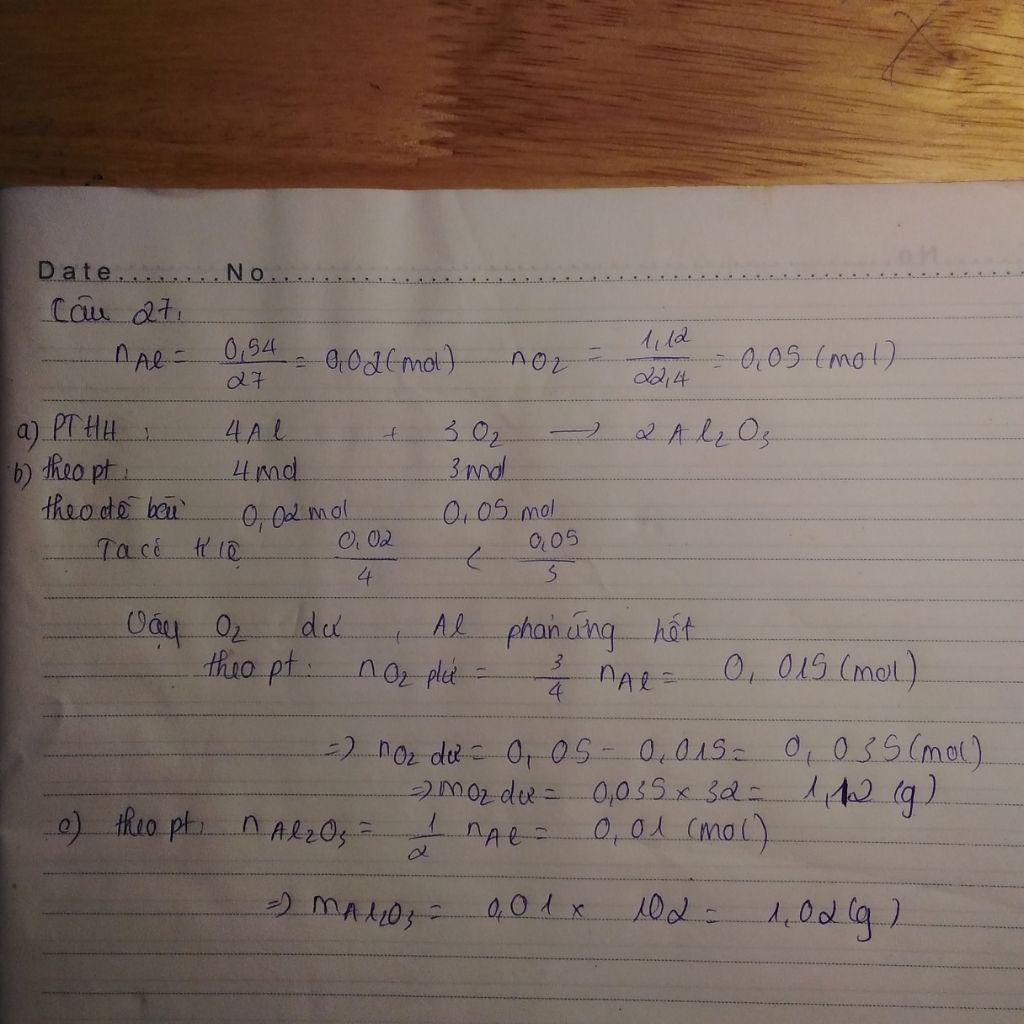 Date........No........
Câu 27.
nAl = 0,54/27 = 0,02 (mol) nO2 = 1,12/22,4 = 0,05 (mol)
a) PTHH: 4Al + 3O2 → 2Al2O3
b) theo pt: 4mol 3mol
theo đề bài 0,02 mol 0,05 mol
Ta có tỉ lệ 0,02/4 < 0,05/3
Vậy O2 dư, Al phản ứng hết
theo pt: nO2 pứ = 3/4 nAl = 0,015 (mol)
=> nO2 dư = 0,05 - 0,015 = 0,035 (mol)
=> mO2 dư = 0,035 x 32 = 1,12 (g)
c) theo pt: nAl2O3 = 1/2 nAl = 0,01 (mol)
=> mAl2O3 = 0,01 x 102 = 1,02 (g)